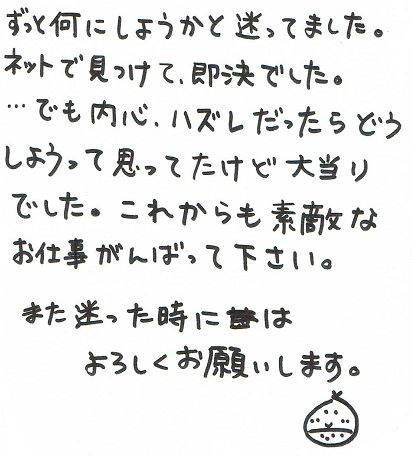 ずっと何にしようかと迷ってました。
ネットで見つけて、即決でした。
…でも内心、ハズレだったらどう
しようって思ってたけど大当り
でした。これからも素敵な
お仕事がんばって下さい。
また迷った時には
よろしくお願いします。